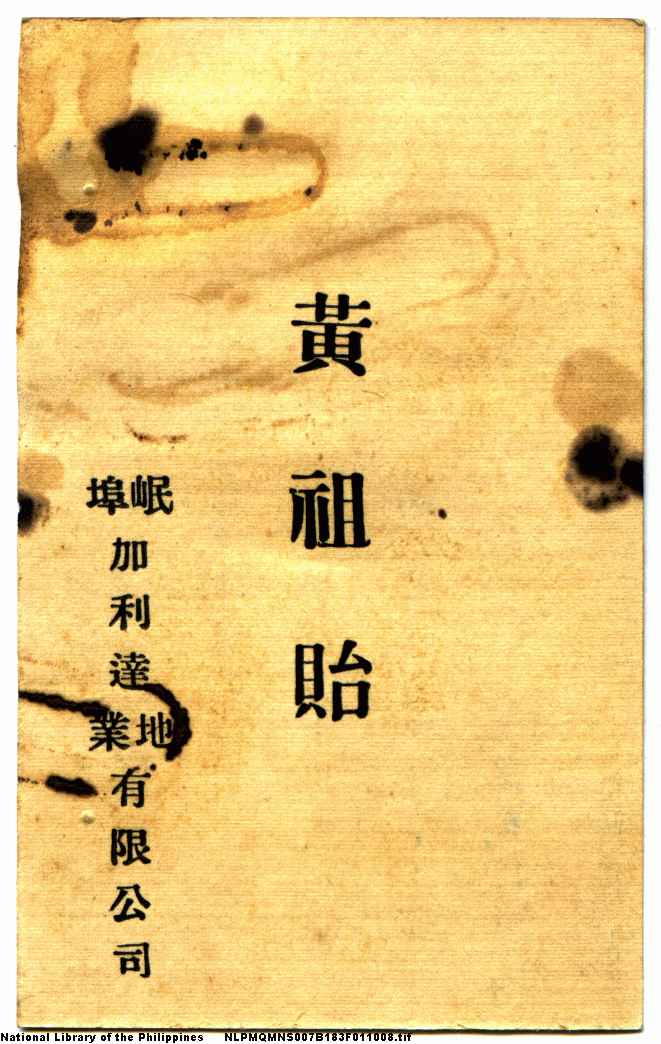 黃祖貽
岷埠加利達地業有限公司
National Library of the Philippines NLPMQMNS007B183F011008.tif